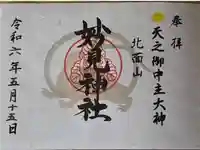 奉拝
天之御中主大神
北面山
妙見神社
令和六年五月十五日